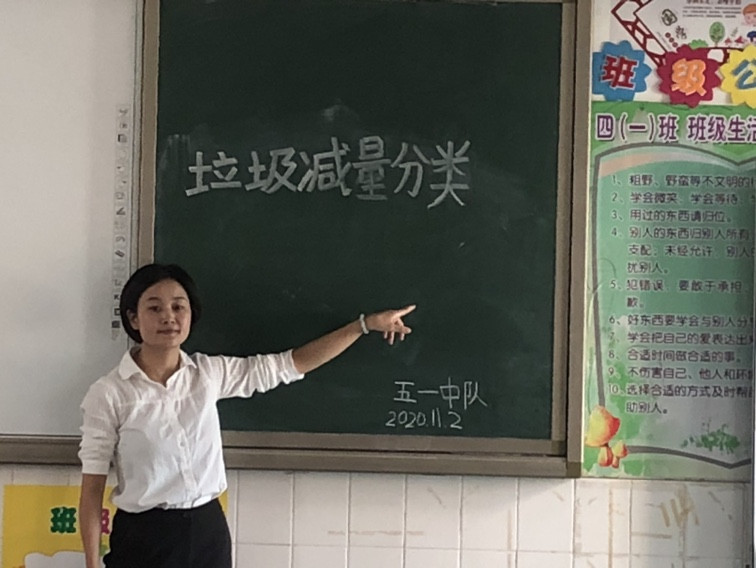 垃圾减量分类
五一中队
2020.11.2
班级公
四(一)班 班级生活
1、粗野、野蛮等不文明的
2、学会微笑、学会等待、
3、用过的东西请归位。
4、别人的东西归别人所有
支配，未经允许，别人
扰别人。
5、犯错误，要敢于承担
歉。
6、好东西要学会与别人分
7、学会把自己的爱表达出
8、合适时间做合适的事。
9、不伤害自己、他人和环
10、选择合适的方式及时帮
助别人。
班级